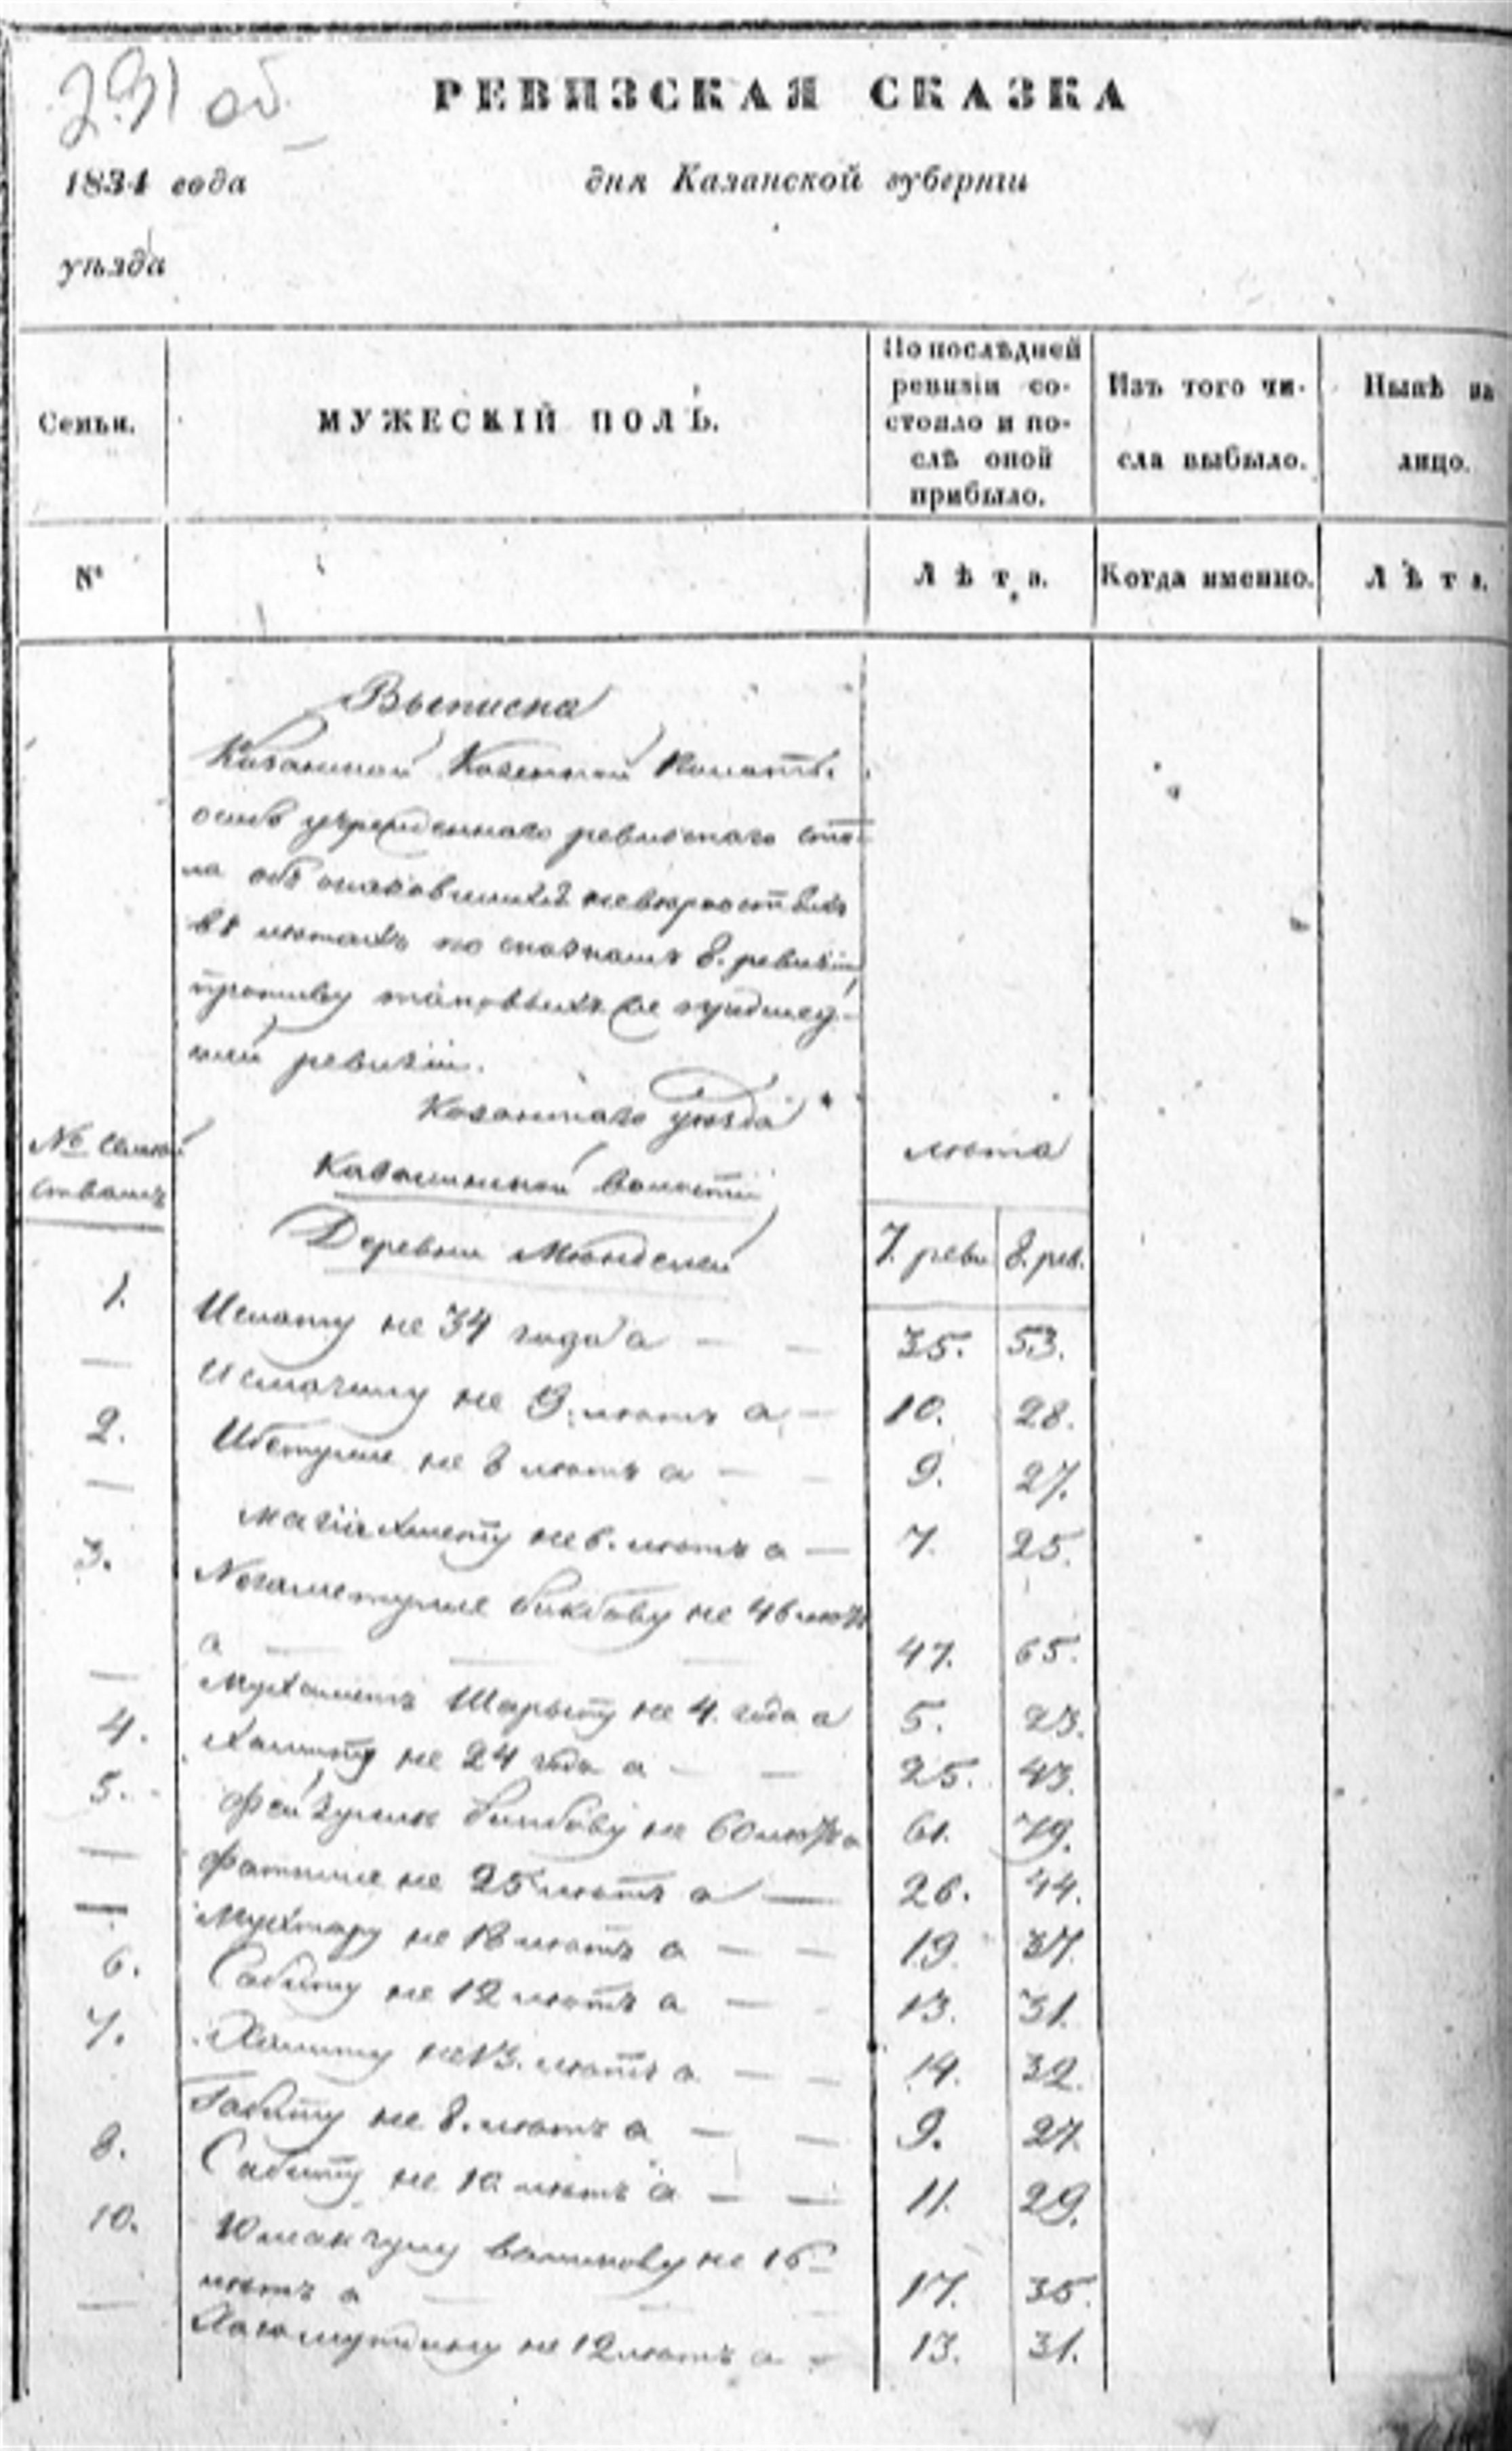 231 об
РЕВИЗСКАЯ СКАЗКА
1834 года
дня Казанской губерніи
уѣзда
Семьи.
МУЖЕСКІЙ ПОЛЪ.
По послѣдней
ревизіи со-
стояло и по-
слѣ оной
прибыло.
Изъ того чи-
сла выбыло.
Нынѣ на
лицо.
№
Лѣта.
Когда именно.
Лѣта.
Выписка
Казанской Казенной Палаты
особо учрежденнаго ревизскаго сто-
ла объ оказавшихся невѣрностяхъ
въ лѣтахъ по сказкамъ 8. ревизіи
противу таковыхъ же предшед-
шей ревизіи.
Казанскаго уѣзда
№ семей
ствамъ
лѣта
волости
Деревни
7. реви 8. рев.
1. не 34 года а — — 35. 53.
— не 9. лѣтъ а — 10. 28.
2. не 8 лѣтъ а — — 9. 27.
— не 6. лѣтъ а — 7. 25.
3. не 46 лѣтъ
а — — — 47. 65.
— Мухаметъ Шарыпу не 4. года а 5. 23.
4. Халиту не 24 года а — — 25. 43.
5. Фейзулле не 60 лѣтъ а 61. 79.
— не 25 лѣтъ а — 26. 44.
— Мухтару не 18 лѣтъ а — — 19. 37.
6. Сабиту не 12 лѣтъ а — 13. 31.
7. не 13. лѣтъ а — — 14. 32.
Габиту не 8. лѣтъ а — — 9. 27.
8. Сабиту не 10 лѣтъ а — — 11. 29.
10. не 16
лѣтъ а — — — 17. 35.
— не 12 лѣтъ а — 13. 31.